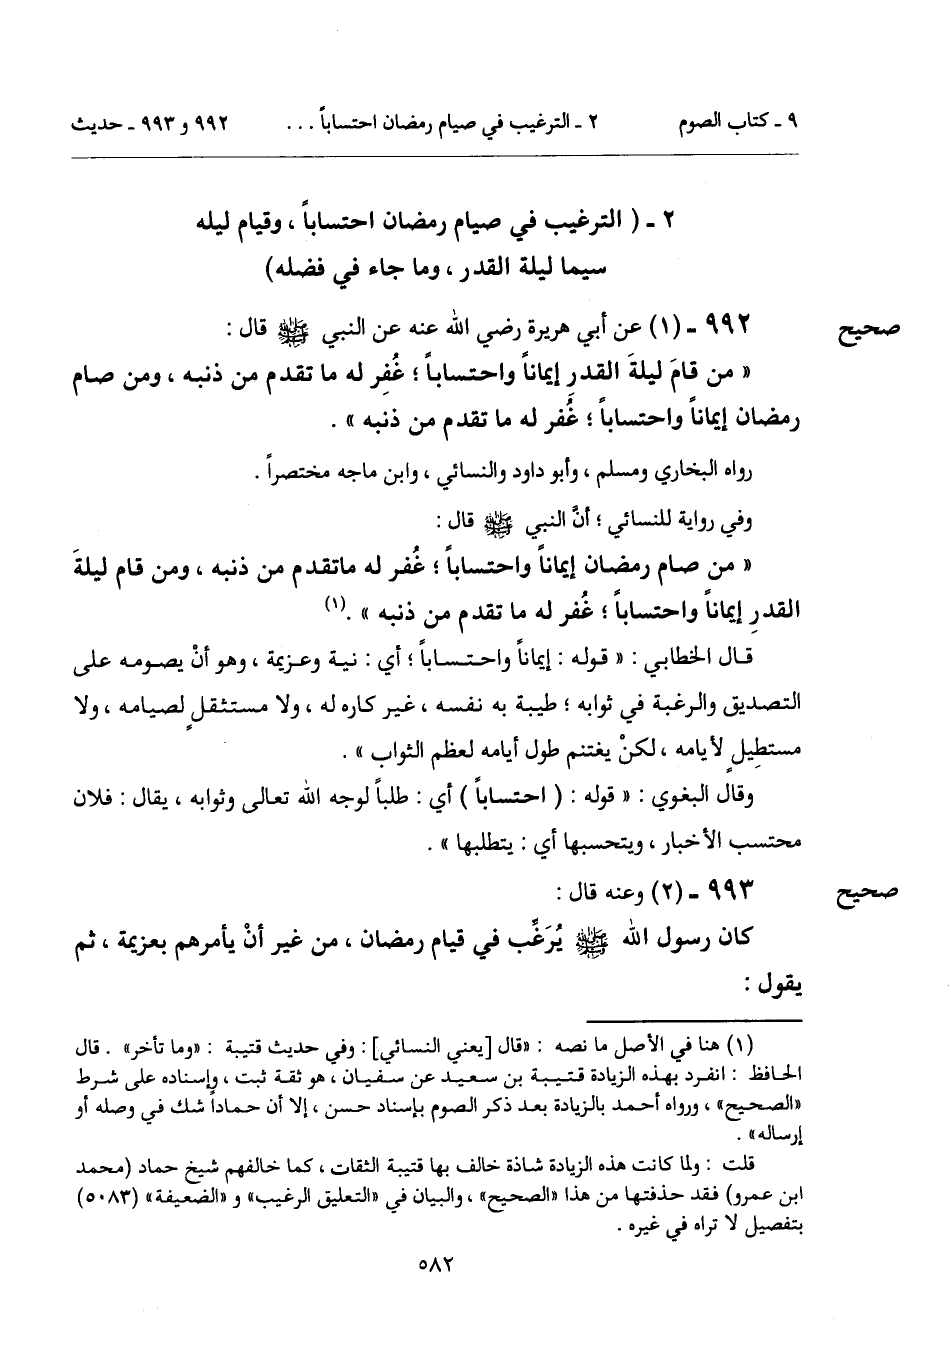 ٩ ـ كتاب الصوم ٢ ـ الترغيب في صيام رمضان احتساباً ... ٩٩٢ و ٩٩٣ ـ حديث
٢ ـ ( الترغيب في صيام رمضان احتساباً ، وقيام ليله
سيما ليلة القدر ، وما جاء في فضله)
صحيح ٩٩٢ ـ (١) عن أبي هريرة رضي الله عنه عن النبي ﷺ قال :
« من قامَ ليلةَ القدرِ إيماناً واحتساباً ؛ غُفِر له ما تقدم من ذنبه ، ومن صام
رمضان إيماناً واحتساباً ؛ غُفر له ما تقدم من ذنبه » .
رواه البخاري ومسلم ، وأبو داود والنسائي ، وابن ماجه مختصراً .
وفي رواية للنسائي ؛ أنَّ النبي ﷺ قال :
« من صام رمضان إيماناً واحتساباً ؛ غُفر له ماتقدم من ذنبه ، ومن قام ليلةَ
القدرِ إيماناً واحتساباً ؛ غُفر له ما تقدم من ذنبه » .(١)
قال الخطابي : « قوله : إيماناً واحتساباً ؛ أي : نية وعزيمة ، وهو أنْ يصومه على
التصديق والرغبة في ثوابه ؛ طيبة به نفسه ، غير كاره له ، ولا مستثقلٍ لصيامه ، ولا
مستطِيلٍ لأيامه ، لكنْ يغتنم طول أيامه لعظم الثواب » .
وقال البغوي : « قوله : ( احتساباً ) أي : طلباً لوجه الله تعالى وثوابه ، يقال : فلان
محتسب الأخبار ، ويتحسبها أي : يتطلبها » .
صحيح ٩٩٣ ـ (٢) وعنه قال :
كان رسول الله ﷺ يُرَغِّب في قيام رمضان ، من غير أنْ يأمرهم بعزيمة ، ثم
يقول :
(١) هنا في الأصل ما نصه : «قال [يعني النسائي] : وفي حديث قتيبة : «وما تأخر» . قال
الحافظ : انفرد بهذه الزيادة قتيبة بن سعيد عن سفيان ، هو ثقة ثبت ، وإسناده على شرط
«الصحيح» ، ورواه أحمد بالزيادة بعد ذكر الصوم بإسناد حسن ، إلا أن حماداً شك في وصله أو
إرساله» .
قلت : ولما كانت هذه الزيادة شاذة خالف بها قتيبة الثقات ، كما خالفهم شيخ حماد (محمد
ابن عمرو) فقد حذفتها من هذا «الصحيح» ، والبيان في «التعليق الرغيب» و «الضعيفة» (٥٠٨٣)
بتفصيل لا تراه في غيره .
٥٨٢